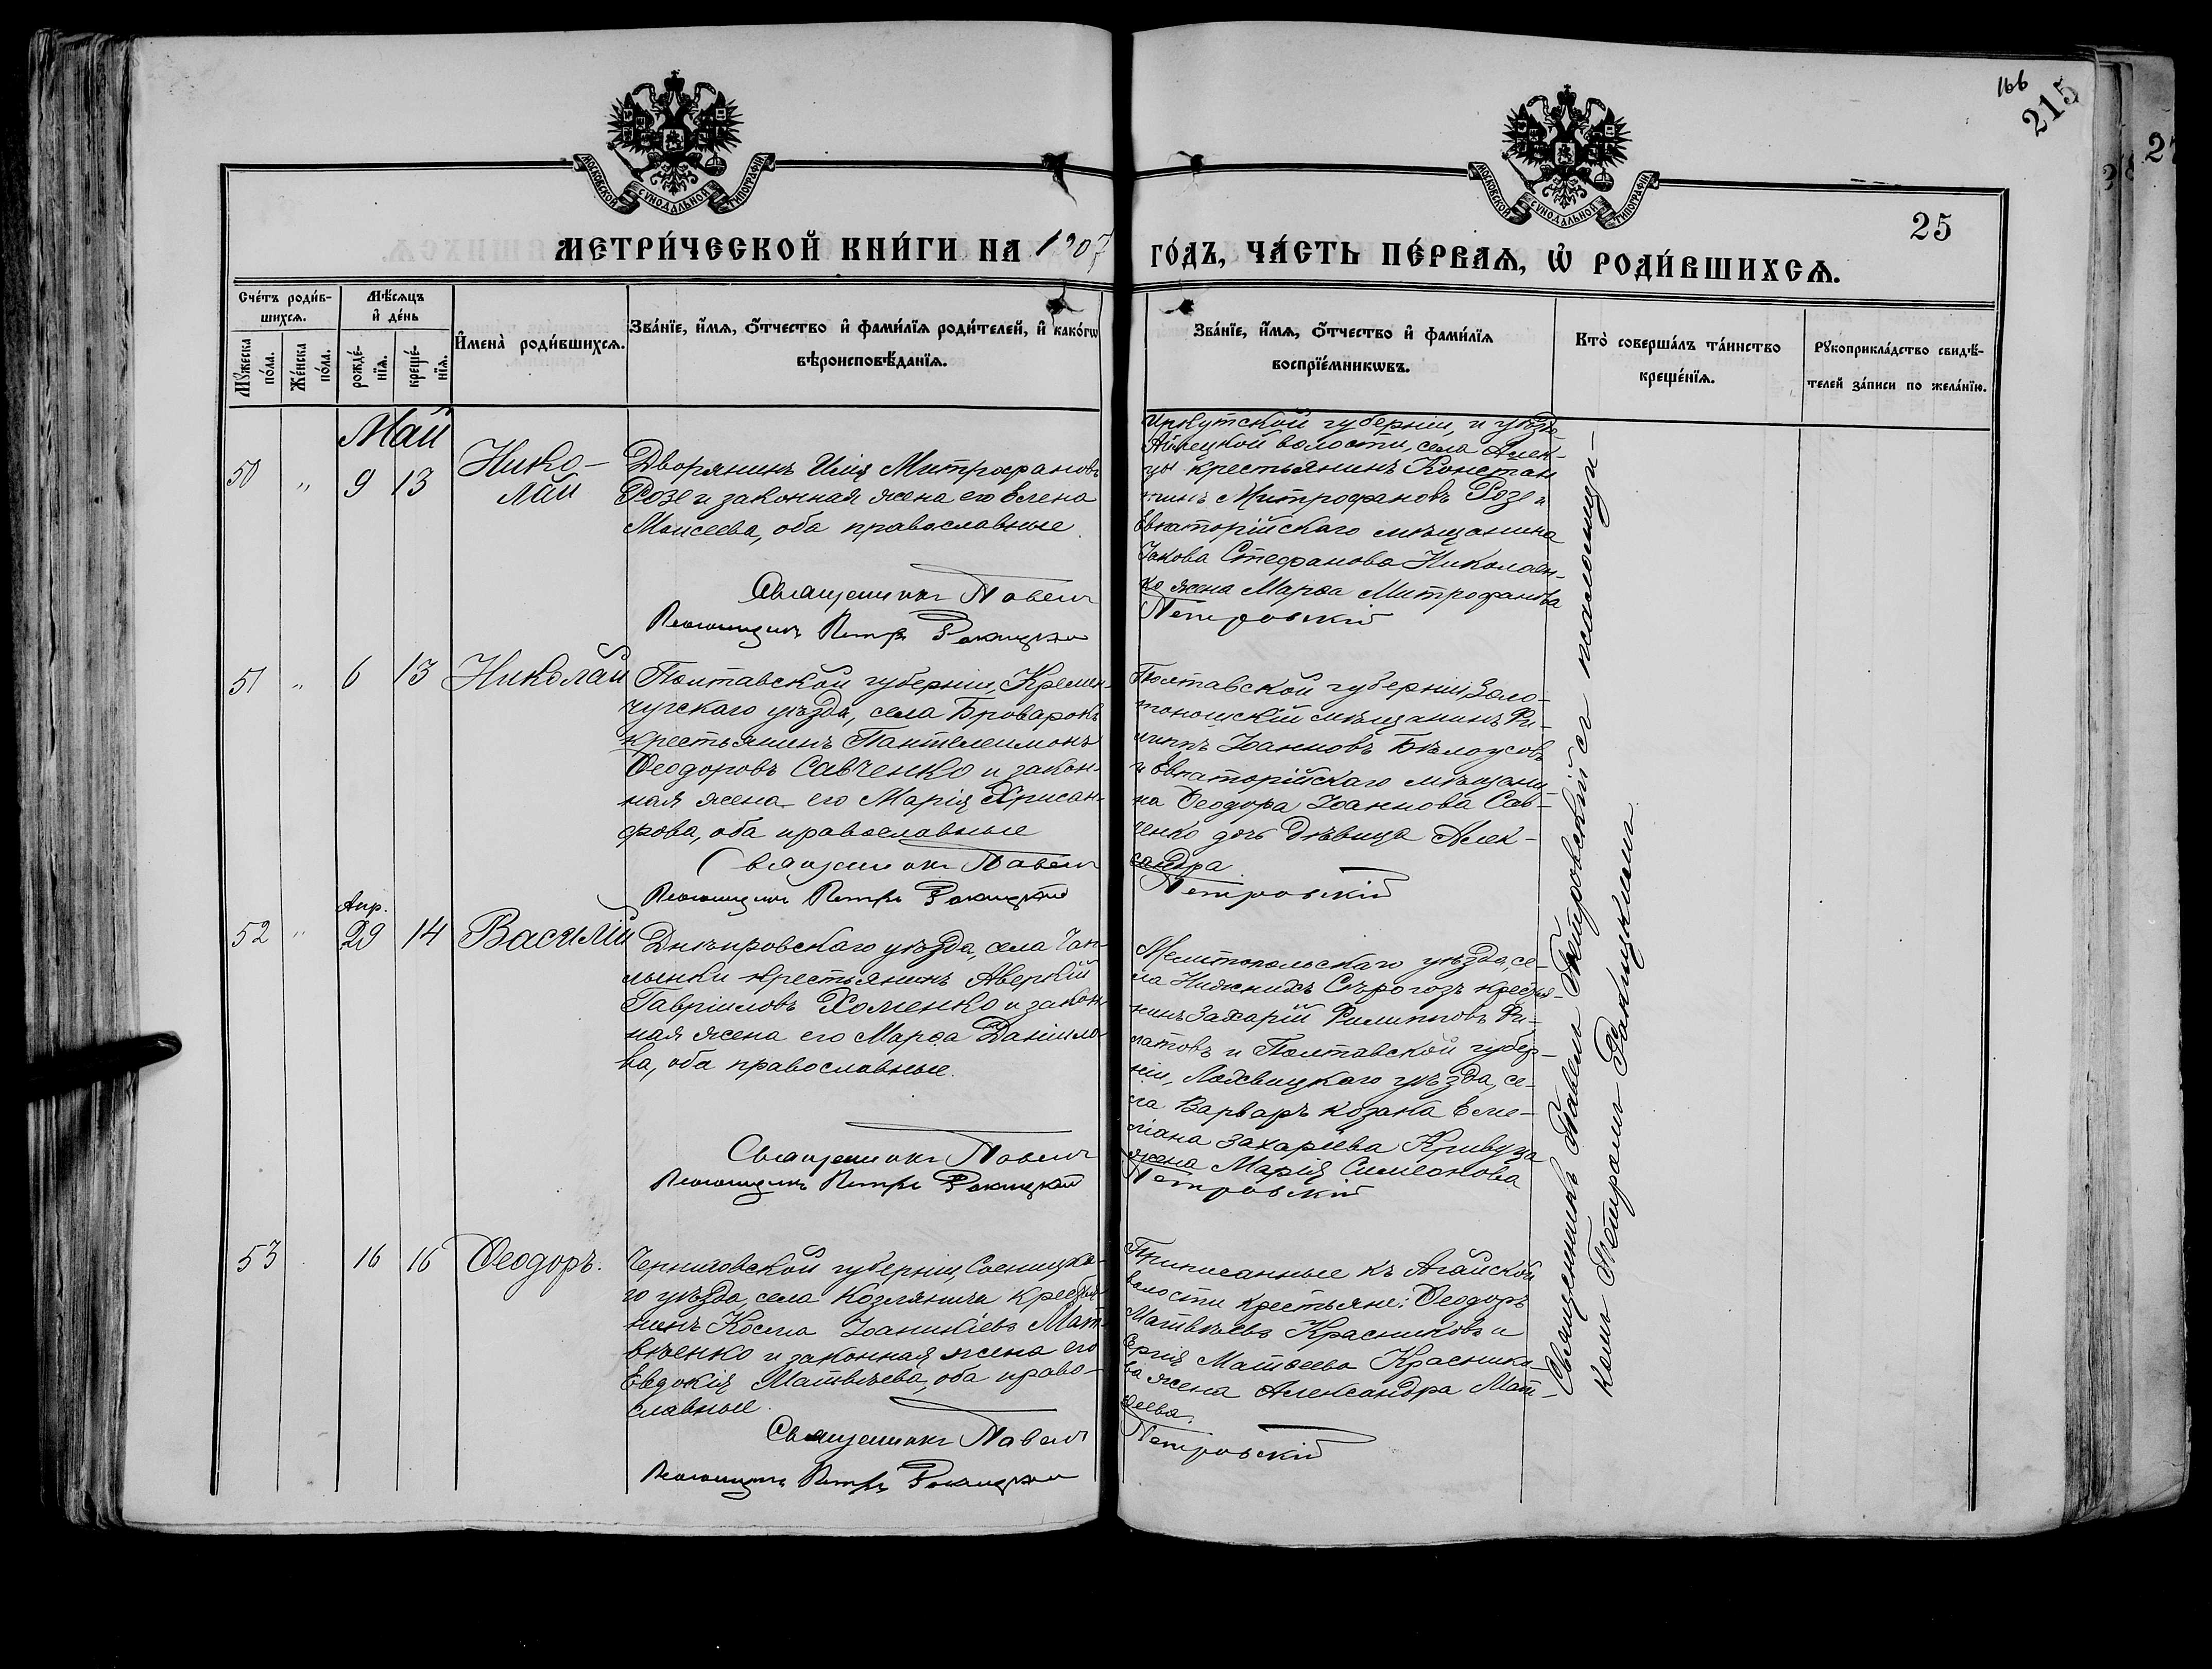 166
215
МОСКОВСКОЙ СѴНОДАЛЬНОЙ ТИПОГРАФІИ
МОСКОВСКОЙ СѴНОДАЛЬНОЙ ТИПОГРАФІИ
25
МЕТРИ́ЧЕСКОЙ КНИ́ГИ НА 1907
ГО́ДЪ, ЧА́СТЬ ПЕ́РВАѦ, Ѡ҆ РОДИ́ВШИХСѦ.
Сче́тъ роди́в-
шихсѧ.
Мꙋ́жеска
по́ла.
Же́нска
по́ла.
Мѣ́сѧцъ
и҆ де́нь
рожде́-
нїѧ.
креще́-
нїѧ.
И҆мена̀ роди́вшихсѧ.
Зва́нїе, и҆́мѧ, ѻ҆́тчество и҆ фами́лїѧ роди́телей, и҆ како́гѡ
вѣроисповѣ́данїѧ.
Зва́нїе, и҆́мѧ, ѻ҆́тчество и҆ фами́лїѧ
воспрїе́мникѡвъ.
Кто̀ соверша́лъ та́инство
креще́нїѧ.
Рꙋкоприкла́дство свидѣ́-
телей за́писи по жела́нїю.
Май
50 " 9 13
Нико-
лай
Дворянинъ Илія Митрофановъ
Розе и законная жена его Елена
Моисеева, оба православные.
Священникъ Павелъ
Псаломщикъ Петръ Ракицкій
Иркутской губерніи, и уѣзда
волости, села Алек-
цы крестьянинъ Констан
тинъ Митрофановъ Розе и
Евпаторійскаго мѣщанина
Іакова Стефанова Николаен-
ко жена Марѳа Митрофанова
Петровскій
51 " 6 13 Николай
Полтавской губерніи, Кремен-
чугскаго уѣзда, села Броварокъ
крестьянинъ Пантелеимонъ
Ѳеодоровъ Савченко и закон-
ная жена его Марія Хрисан-
фова, оба православные
Священникъ Павелъ
Псаломщикъ Петръ Ракицкій
Полтавской губерніи, Золо-
тоношскій мѣщанинъ Фи-
липпъ Іоанновъ Бѣлоусовъ
и Евпаторійскаго мѣщани-
на Ѳеодора Іоаннова Сав-
ченко дочь дѣвица Алек-
сандра
Петровскій
Апр.
52 " 29 14 Василій
Днѣпровскаго уѣзда, села Чап-
лынки крестьянинъ Аверкій
Гавріиловъ Хоменко и закон-
ная жена его Марѳа Даніило-
ва, оба православные.
Священникъ Павелъ
Псаломщикъ Петръ Ракицкій
Мелитопольскаго уѣзда, се-
ла Нижнихъ Сѣрогозъ крестья-
нинъ Захарій Филипповъ Фи-
латовъ и Полтавской губер-
ніи, Лохвицкаго уѣзда, се-
ла Варваръ козака Еме-
ліана Захаріева Кривуза
жена Марія Симеонова
Петровскій
53 16 16 Ѳеодоръ.
Черниговской губерніи, Сосницка-
го уѣзда, села Козляничи крестья-
нинъ Косма Іоанникіевъ Мат-
вѣенко и законная жена его
Евдокія Матвѣева, оба право-
славные.
Священникъ Павелъ
Псаломщикъ Петръ Ракицкій
Приписанные къ Агайской
волости крестьяне: Ѳеодоръ
Матвѣевъ Красниковъ и
Сергія Матѳеева Краснико-
ва жена Александра Мат-
ѳеева.
Петровскій
Священникъ Павелъ Петровскій съ псаломщи-
комъ Петромъ Ракицкимъ